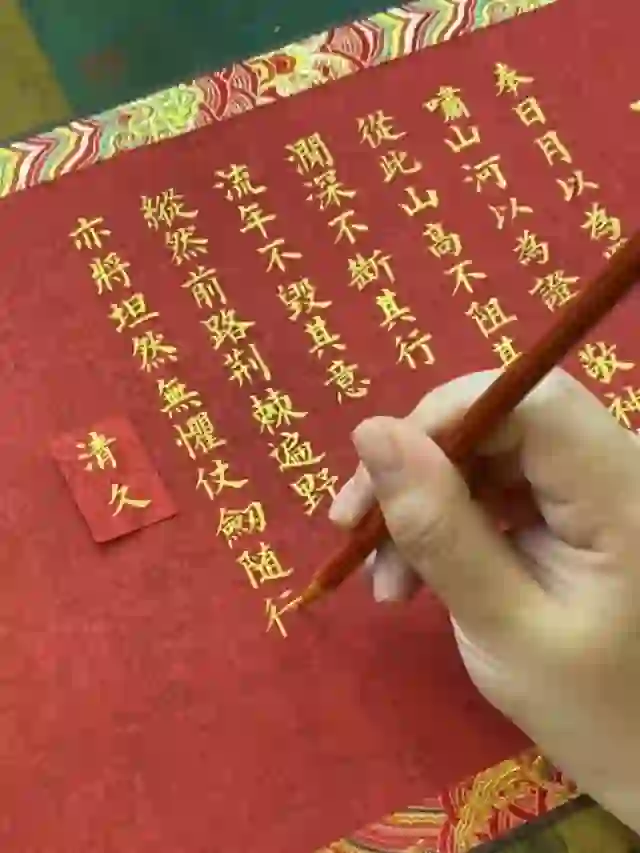 敬神
奉日月以為
嘯山河以為證
從此山高不阻其
澗深不斷其行
流年不毀其意
縱然前路荊棘遍野
亦將坦然無懼仗劒随行
清久